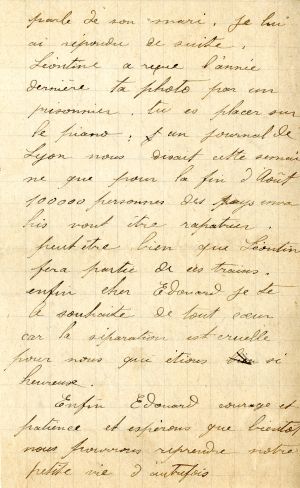 parle de son mari. Je lui
ai répondu de suite.
Léontine a reçue l'année
dernière ta photo par un
prisonnier. tu es placer sur
le piano. un journal de
Lyon nous disait cette semai
ne que pour la fin d'Août
100000 personnes des pays enva
his vont être rapatrier.
peut être bien que Léontin
fera partie de ces trains.
enfin cher Edouard je te
le souhaite de tout cœur
car la séparation est cruelle
pour nous qui étions si
heureuse.
Enfin Edouard courage et
patience et espérons que bientôt
nous pourrons reprendre notre
petite vie d'autrefois